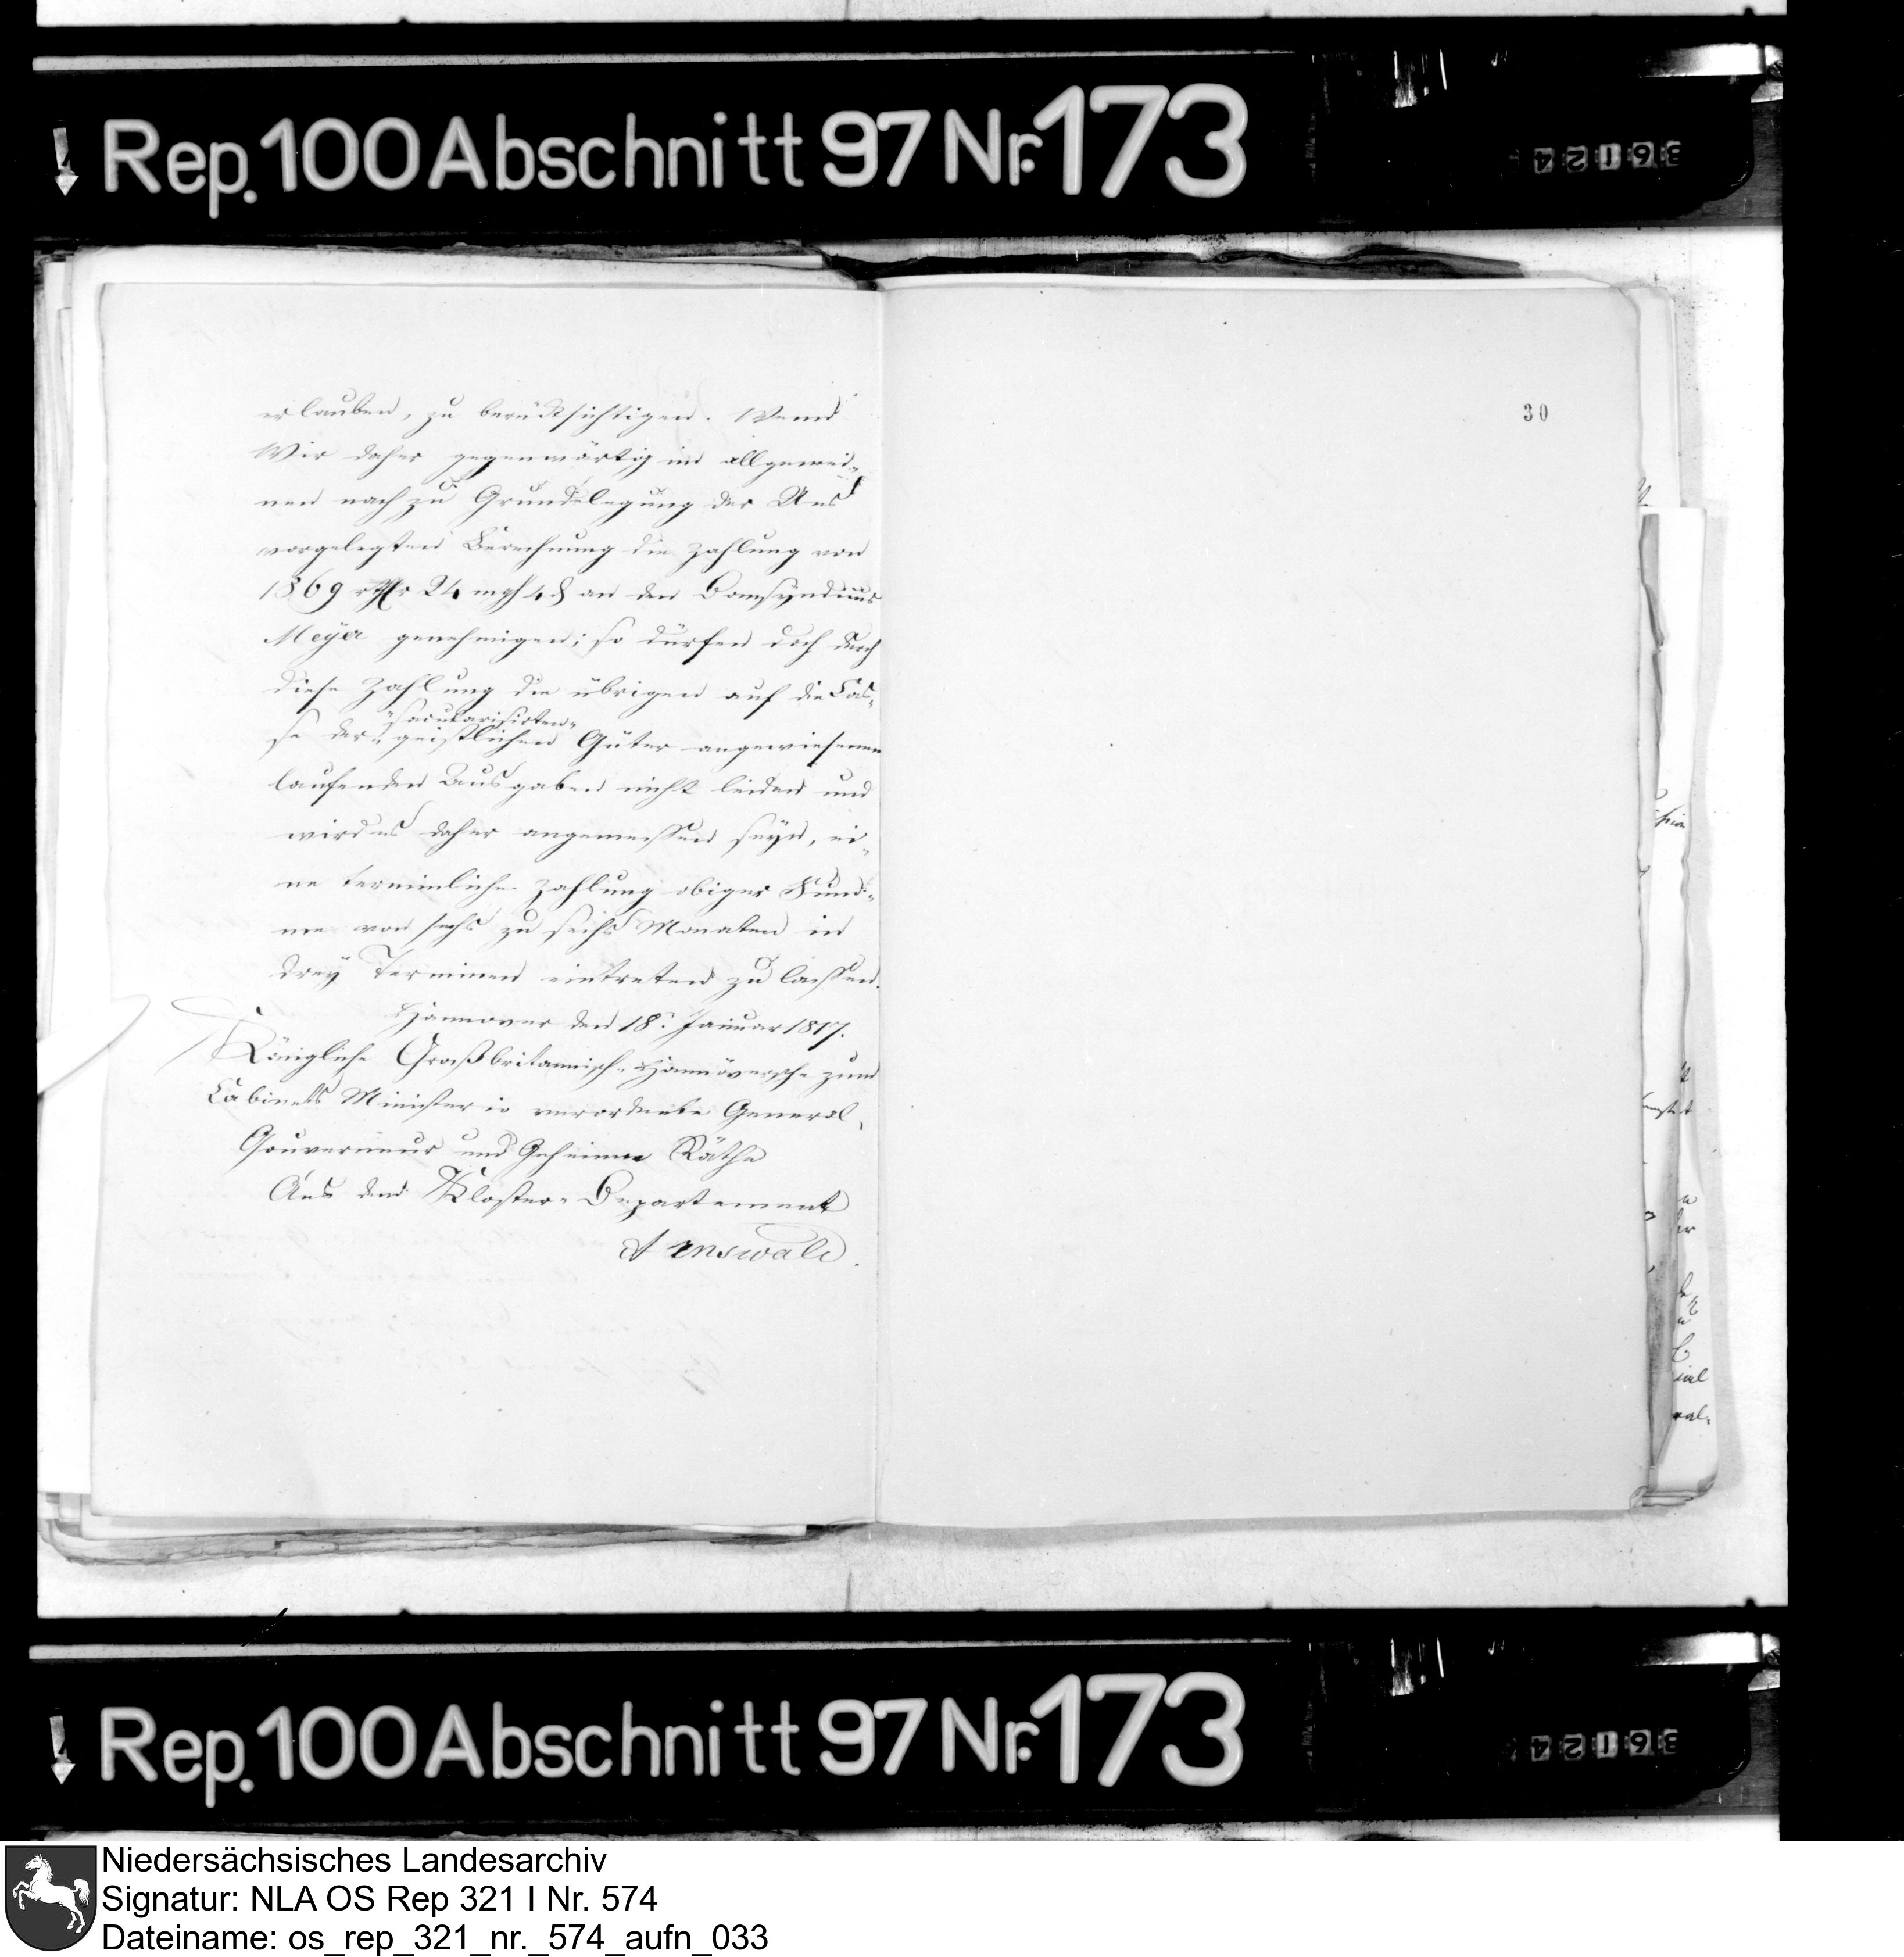 Rep. 100 Abschnitt 97 Nr. 173
36124
erlauben, zu berücksichtigen. Wenn
Wir daher gegenwärtig im allgemei-
nen nach zu Grundelegung der Uns
vorgelegten Berechnung die Zahlung von
1369 rthlr 24 mgh 4 d an den Domsyndicus
Meyer genehmigen; so dürfen doch durch
diese Zahlung die übrigen auf die Cas-
"säcularisirten"
se der geistlichen Güter angewiesenen
laufenden Ausgaben nicht leiden und
wird es daher angemessen seyn, ei-
ne terminliche Zahlung obiger Sum-
me von sechs zu sechs Monaten in
drey Terminen eintreten zu lassen.
Hannover den 18. Januar 1817.
Königliche Großbritannisch-Hannöversche zum
Cabinets Ministerio verordnete General-
Gouverneur und Geheime Räthe
Aus dem Kloster-Departement
Arnswald.
30
Rep. 100 Abschnitt 97 Nr. 173
36124
Niedersächsisches Landesarchiv
Signatur: NLA OS Rep 321 I Nr. 574
Dateiname: os_rep_321_nr._574_aufn_033